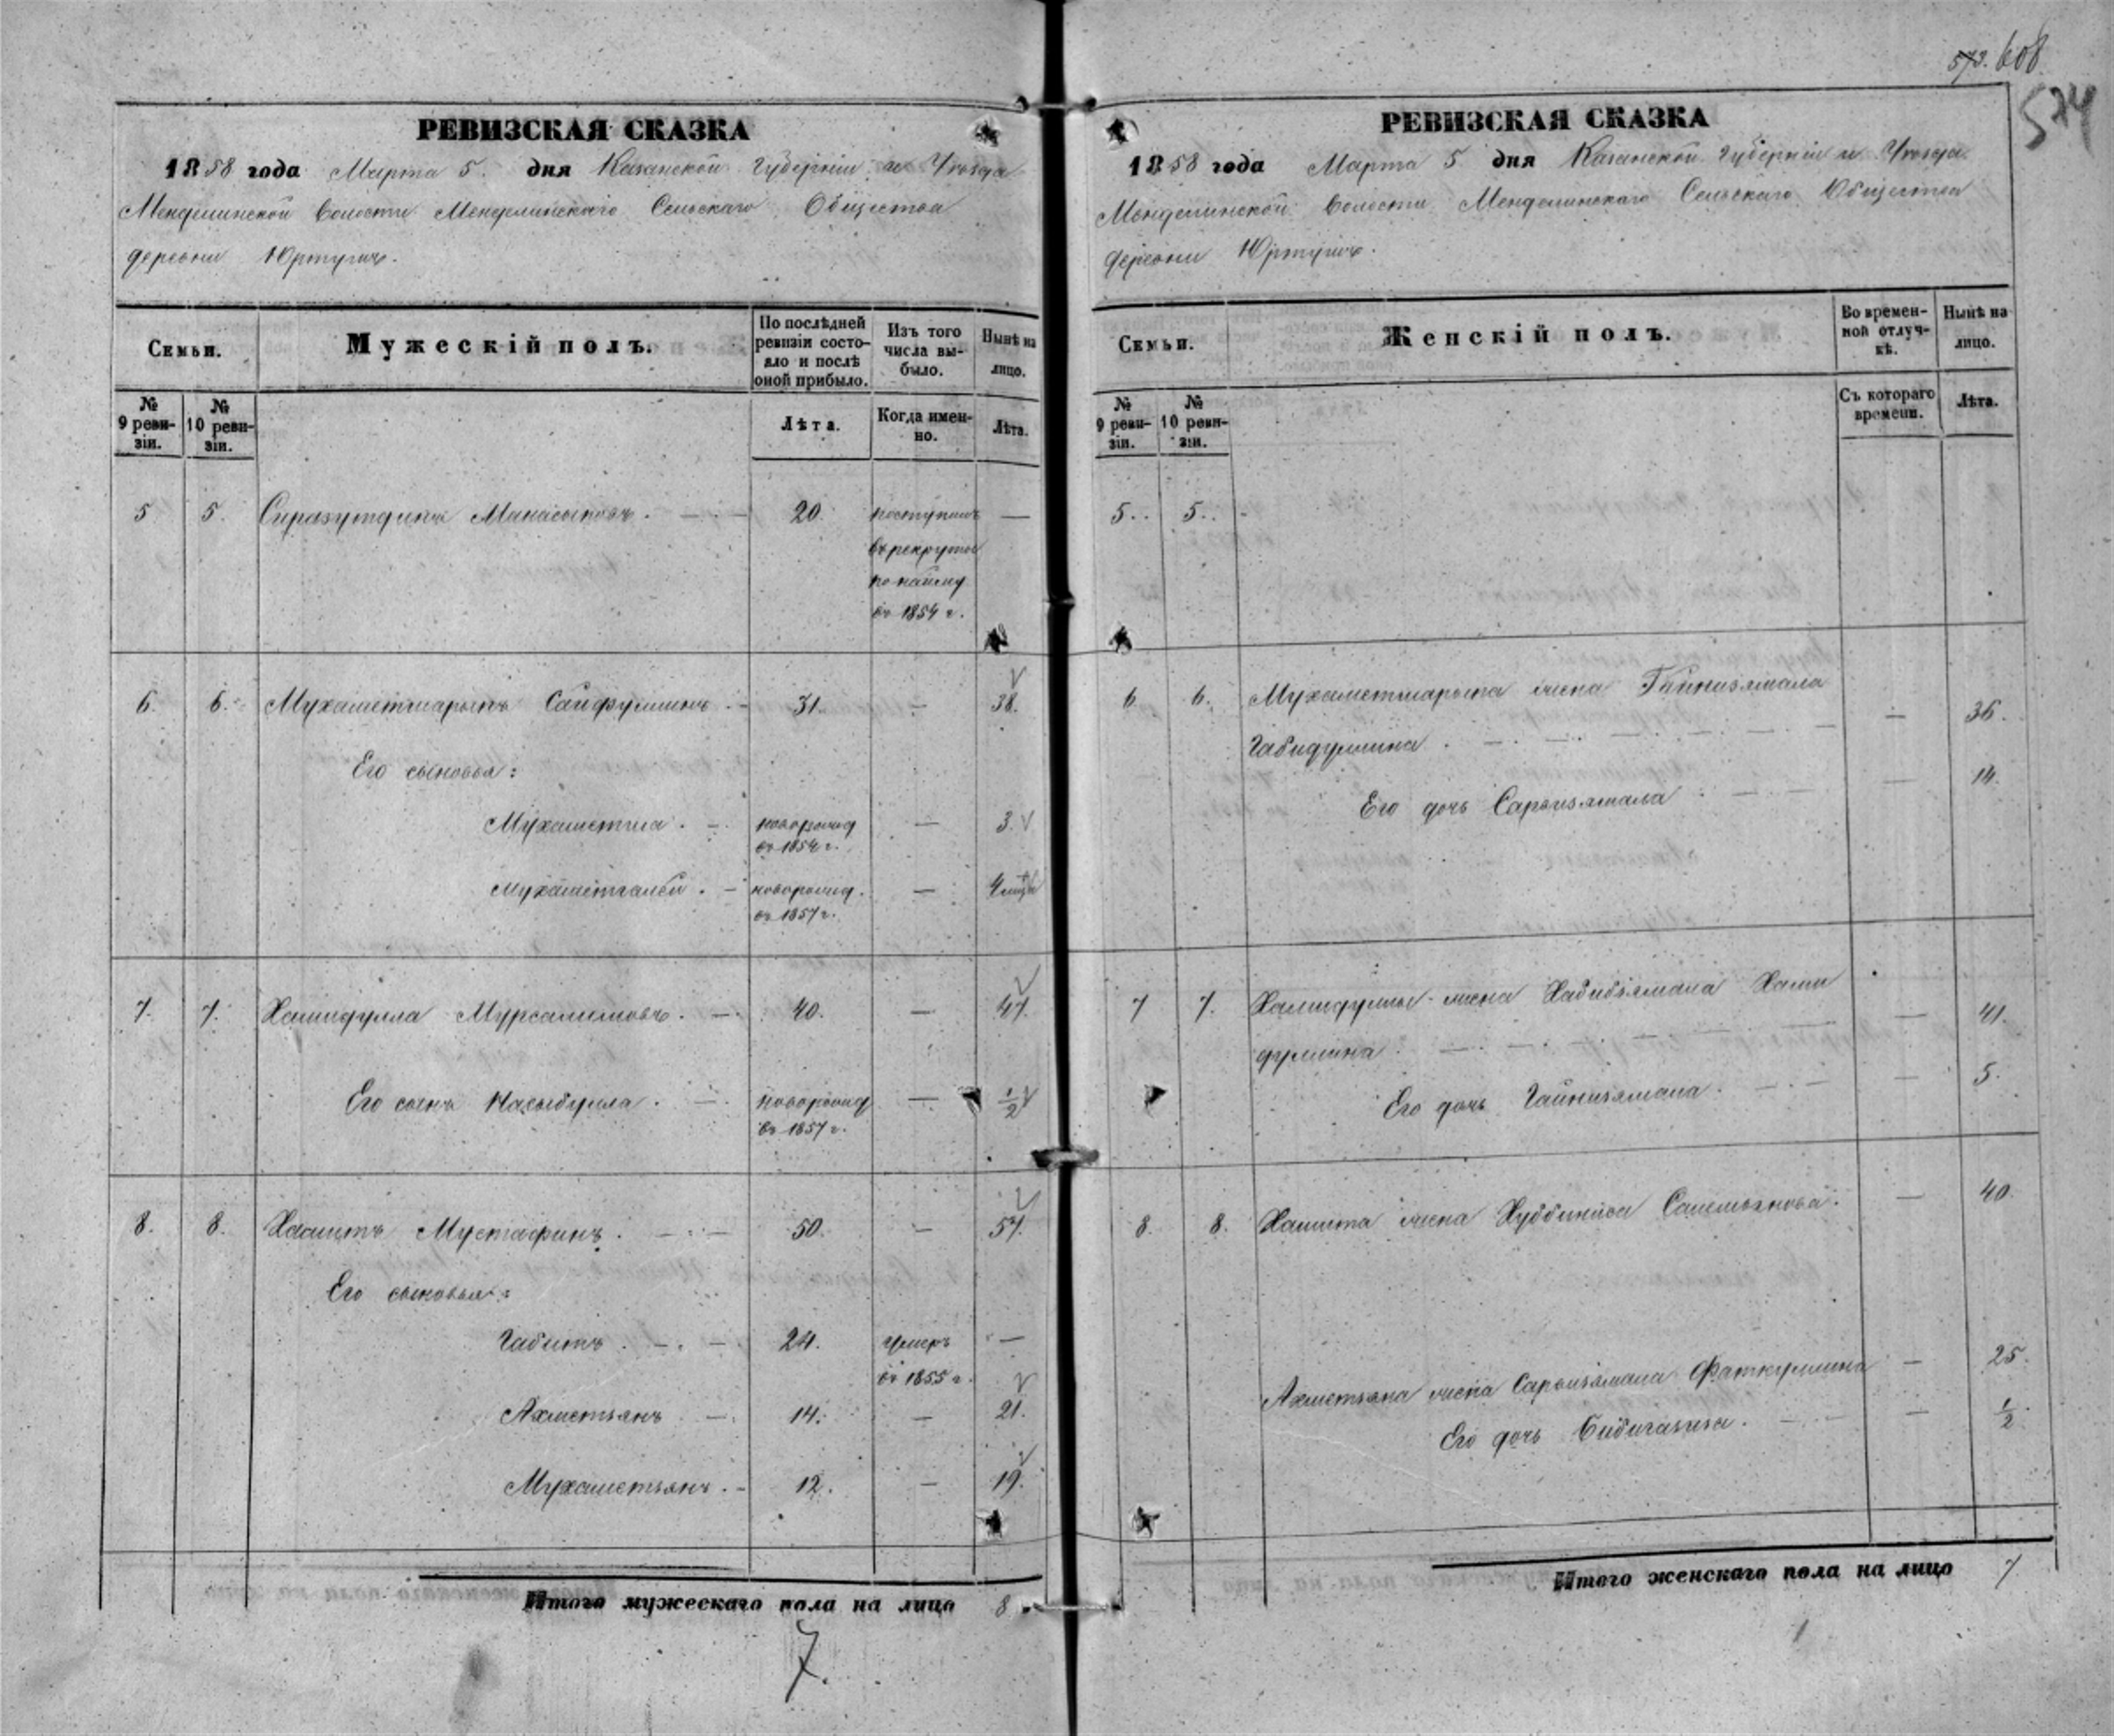 573. 608
574
РЕВИЗСКАЯ СКАЗКА
1858 года Марта 5. дня Казанской Губернии и Уезда
Менделинской волости Менделинскаго Сельскаго Общества
деревни Юртушъ.
Семьи.
Мужескій полъ.
По послѣдней
ревизіи состо-
яло и послѣ
оной прибыло.
Изъ того
числа вы-
было.
Нынѣ на
лицо.
№
9 реви-
зіи.
№
10 реви-
зіи.
Лѣта.
Когда имен-
но.
Лѣта.
5 5. Сиразутдинъ Манасыповъ. 20. поступилъ —
въ рекруты
по найму
въ 1854 г.
6. 6. Мухаметшарыпъ Сайфуллинъ. 31. — 38.
Его сыновья:
Мухаметша. новорожд — 3.
въ 1854 г.
Мухаметгалей. новорожд. —
въ 1857 г.
7. 7. Хамидулла Мурсалимовъ. 40. — 47.
Его сынъ Насыбулла. новорожд — 1/2
въ 1857 г.
8. 8. Хамитъ Мустафинъ. 50. — 57.
Его сыновья:
Габитъ. 24. умеръ —
въ 1855 г.
Ахметзянъ 14. — 21.
Мухаметзянъ. 12. — 19.
Итого мужескаго пола на лицо 8.
7.
РЕВИЗСКАЯ СКАЗКА
1858 года Марта 5 дня Казанской Губернии и Уезда
Менделинской волости Менделинскаго Сельскаго Общества
деревни Юртушъ.
Семьи.
Женскій полъ.
Во времен-
ной отлуч-
кѣ.
Нынѣ на
лицо.
№
9 реви-
зіи.
№
10 реви-
зіи.
Съ котораго
времени.
Лѣта.
5. 5.
6 6. Мухаметшарыпа жена Гайнизямала
Габидуллина. — 36.
Его дочь Сарбизямала — 14.
7 7. Хамидуллы жена Хабибзямала Хами
дуллина. — 41.
Его дочь Гайнизямала. — 5.
8. 8. Хамита жена Хуббиниса Салемзянова. — 40.
Ахметзяна жена Сарбизямала Фаткуллина — 25.
Его дочь Бибигазиза. — 1/2.
Итого женскаго пола на лицо 7